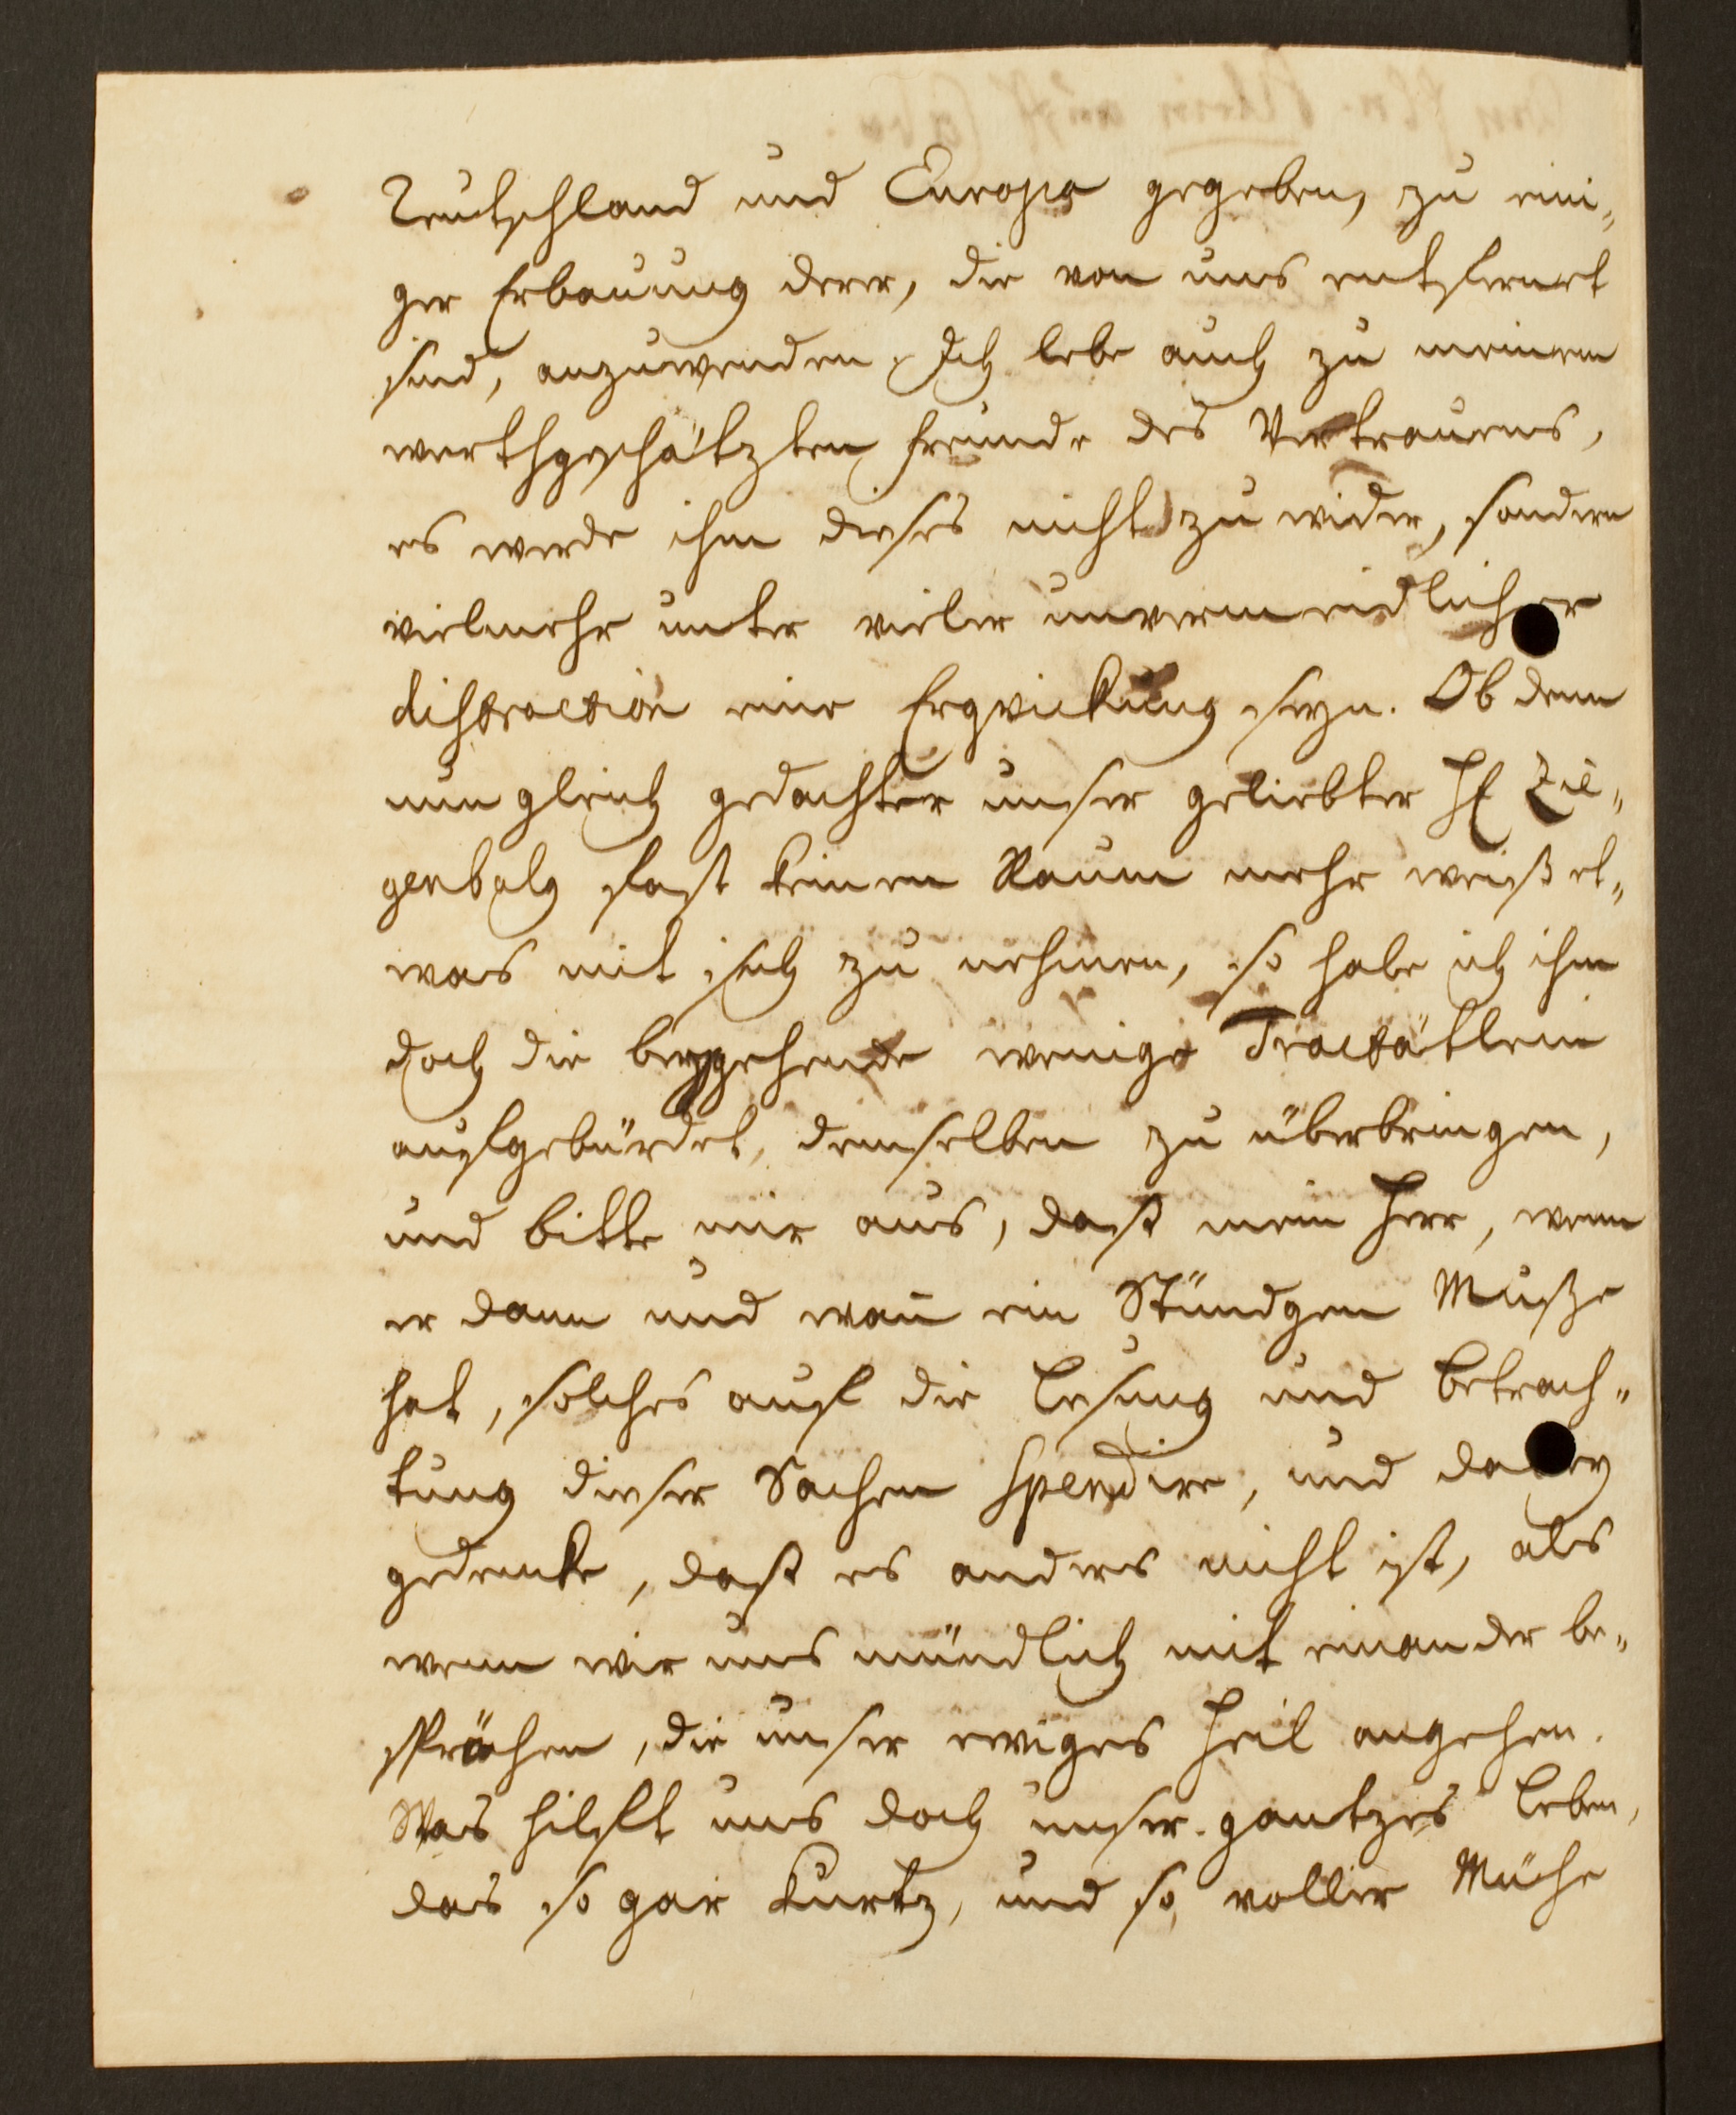 Teutschland und Europa gegeben, zu eini-
ger Erbauung derer, die von uns entfernet
sind, anzuwenden. Ich lebe auch zu meinem
werthgeschätzten Freunde des Vertrauens,
es werde ihm dieses nicht zu wider, sondern
vielmehr unter vieler unvermeidlicher
distraction eine Ergvickung seyn. Ob denn
nun gleich gedachter unser geliebter H Zie-
genbalg fast keinen Raum mehr weiß et-
was mit sich zu nehmen, so habe ich ihm
doch die beygehende wenige Tractätlein
aufgebürdet, demselben zu überbringen,
und bitte mir aus, daß mein Herr, wenn
er dann und wañ ein Stündgen Muße
hat, solches auf die Lesung und Betrach-
tung dieser Sachen spendire, und dabey
gedencke, daß es anders nicht ist, als
wenn wir uns mündlich mit einander be-
sprächen, die unser ewiges Heil angehen.
Was hilfft uns doch unser gantzes Leben,
das so gar kurtz, und so voller Mühe